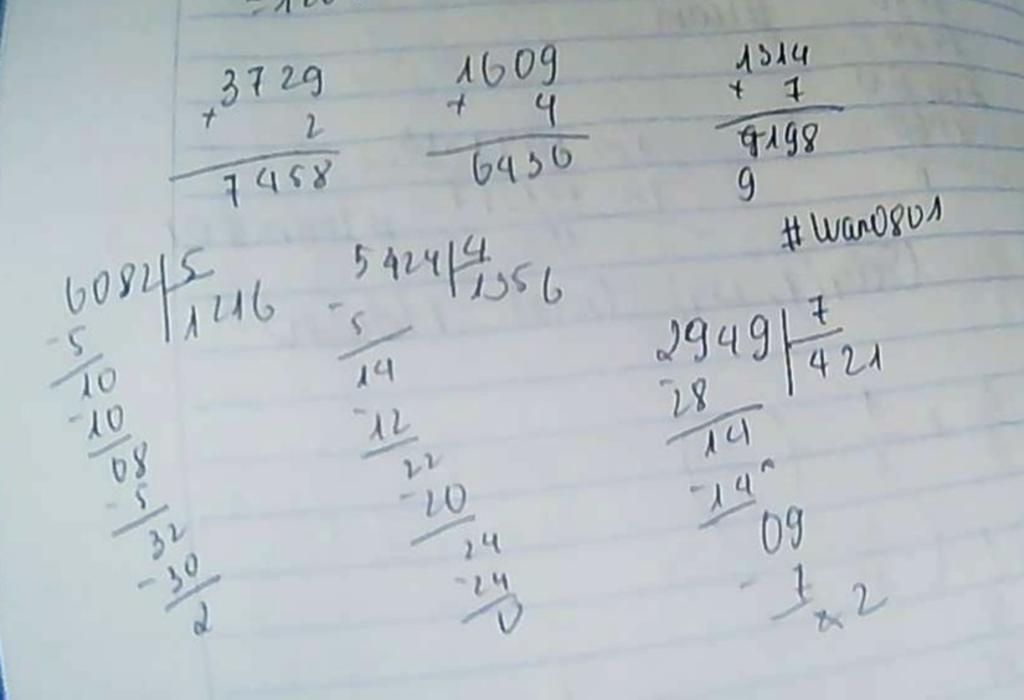 3729
+ 2
7458
1609
+ 4
6436
1314
+ 7
9198
9
#Wan0801
6082 5
1216
-5
10
-10
08
-5
32
-30
2
5424 4
1356
-5
14
-12
22
-20
24
-24
0
2949 7
421
-28
14
-14
09
-7
2